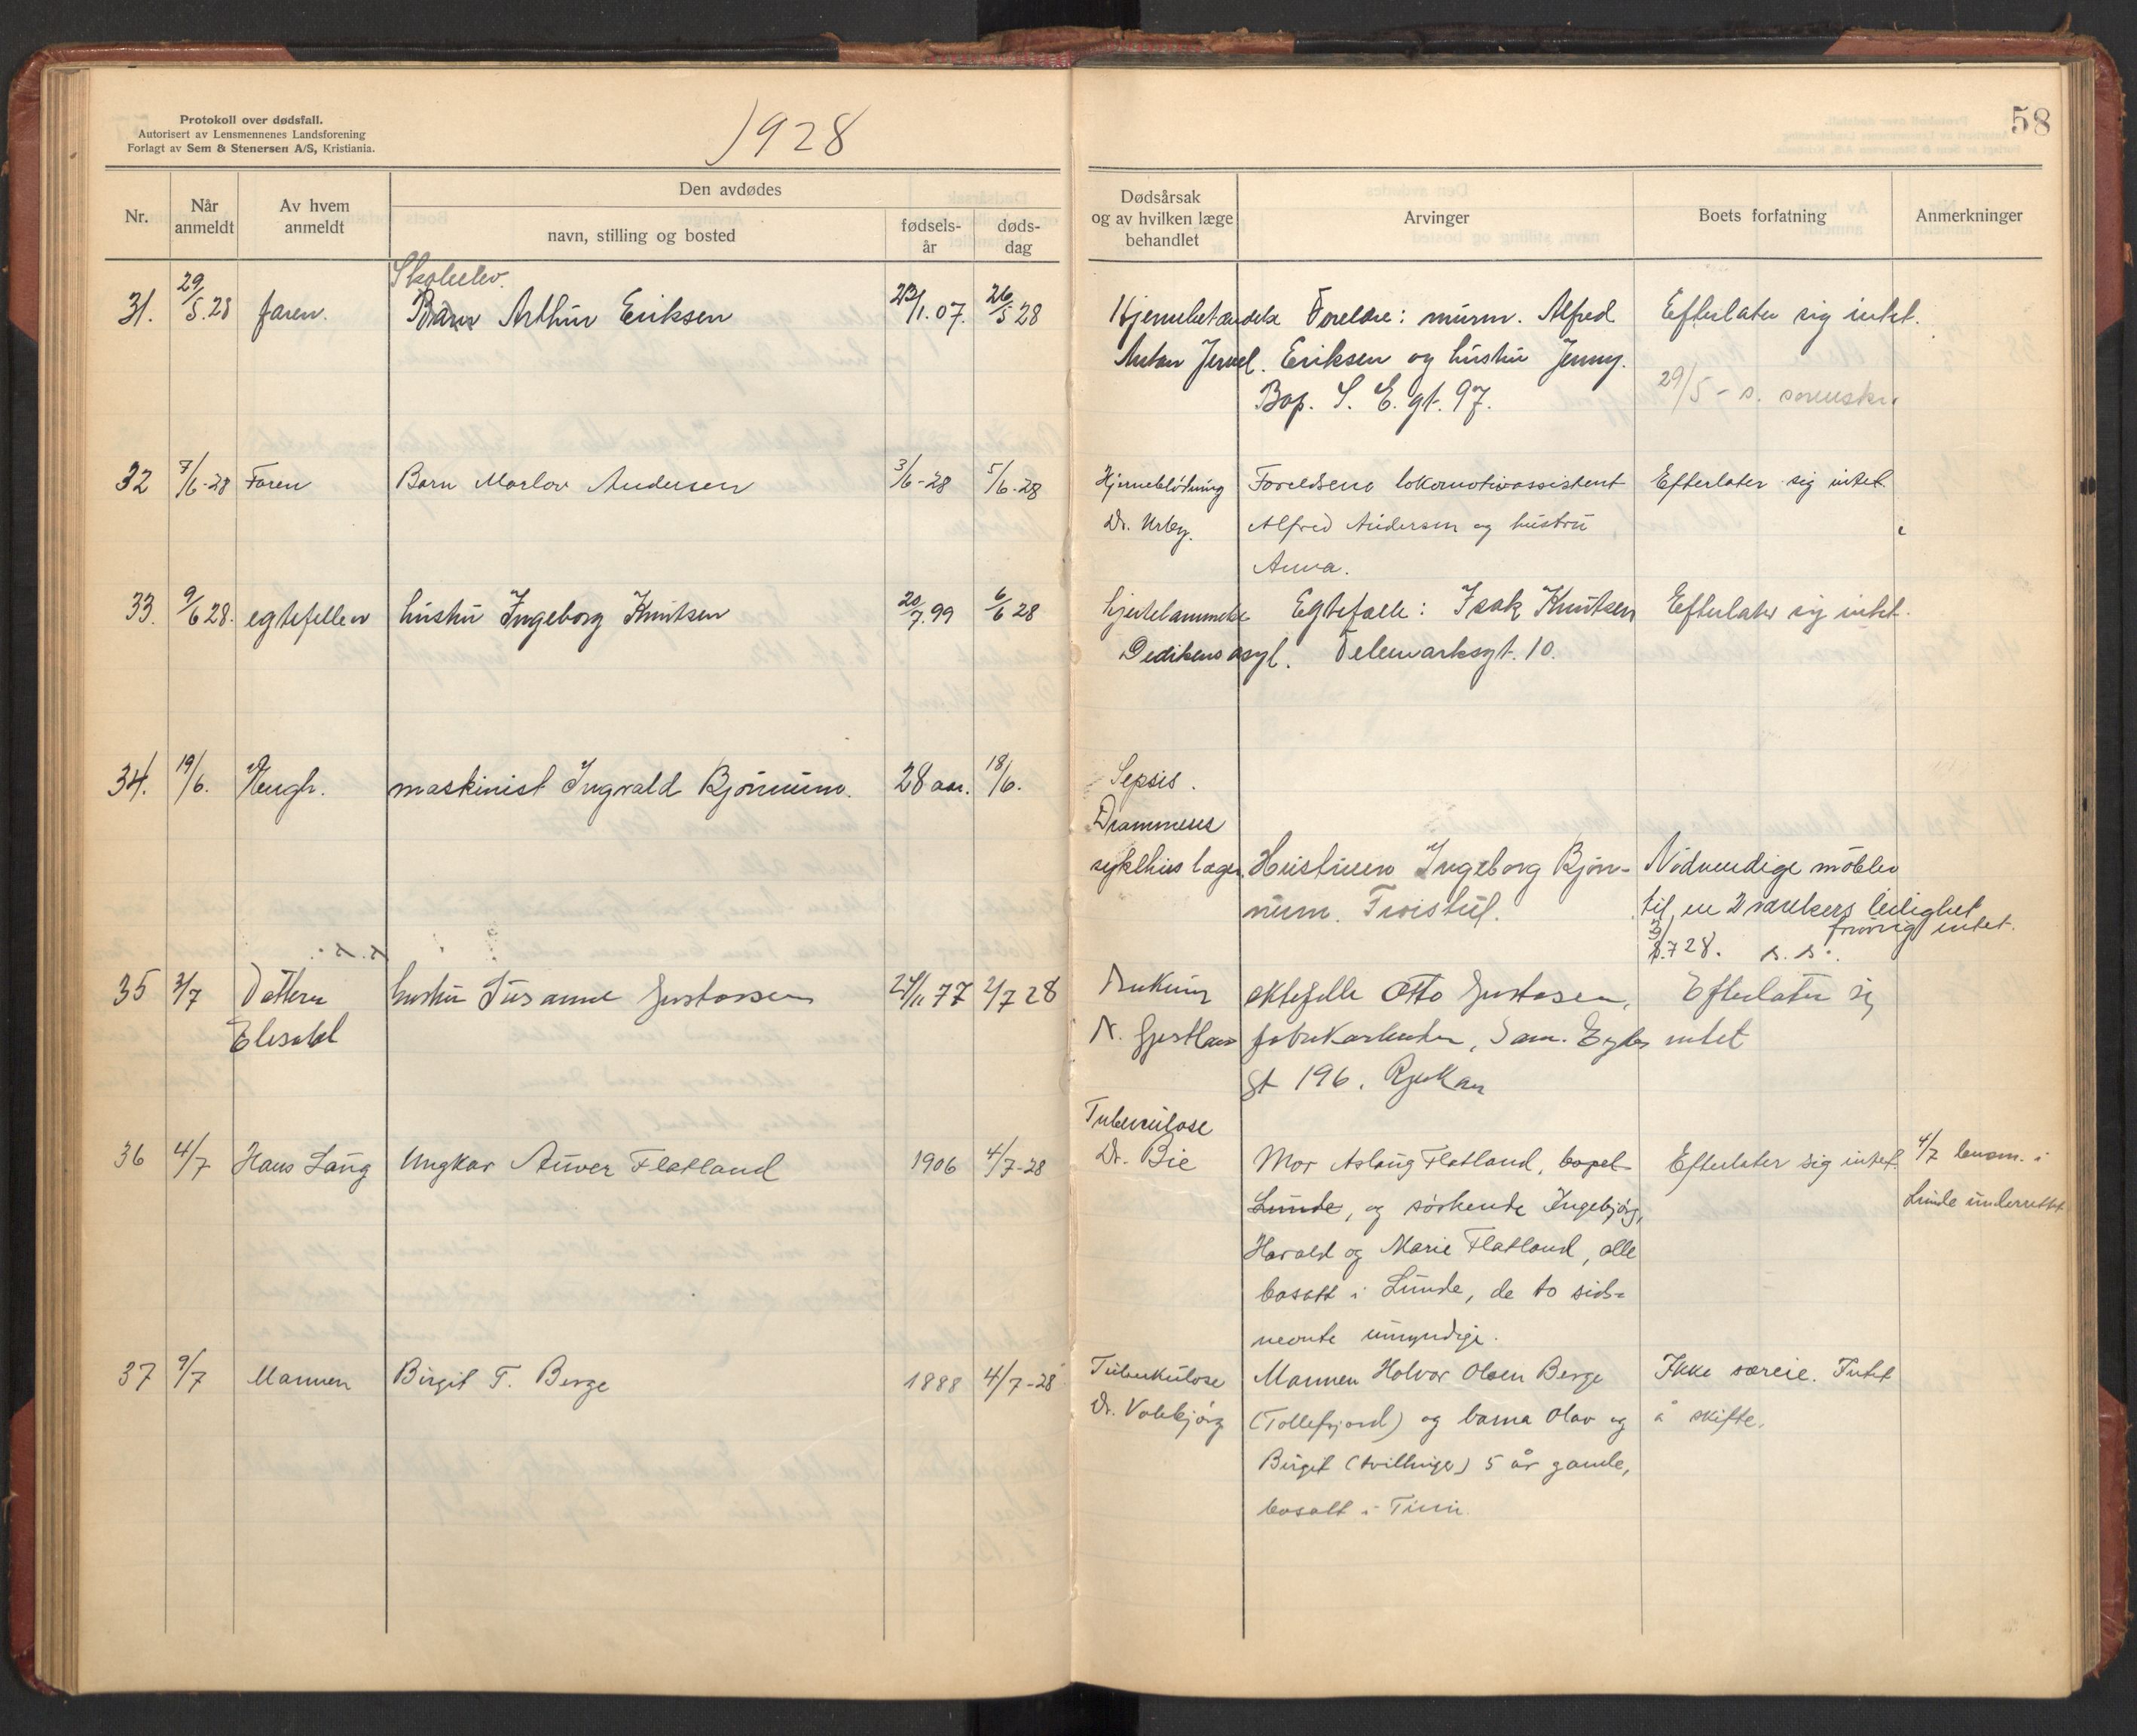 Protokoll over dødsfall.
Autorisert av Lensmennenes Landsforening
Forlagt av Sem & Stenersen A/S, Kristiania.
1928
58
Nr.
Når anmeldt
Av hvem anmeldt
Den avdødes
navn, stilling og bosted
fødsels-år
døds-dag
Dødsårsak og av hvilken læge behandlet
Arvinger
Boets forfatning
Anmerkninger
Skoleelev.
31. 29/5.28 faren. Barn Arthur Eriksen 23/1.07. 26/5 28 Hjernebetændelse Foreldre: murm. Alfred Efterlater sig intet.
Anton Jervel. Eriksen og hustru Jenny.
Bop. S. E. gt. 97. 29/5 - s. sorenskr.
32 7/6-28 Faren Barn Marlov Andersen 3/6-28 5/6-28 Hjerneblødning Foreldrene lokomotivassistent Efterlater sig intet.
Dr. Urby. Alfred Andersen og hustru
Anna.
33. 9/6 28. egtefellen hustru Ingeborg Knutsen 20/7.99 6/6 28 hjertelammelse Egtefælle: Isak Knutsen Efterlater sig intet.
Dedikens asyl. Telemarksgt. 10.
34. 19/6. Haugh. maskinist Ingvald Bjørnum. 28 aar. 18/6. Sepsis.
Drammens
sykehus læge. Hustruen Ingeborg Bjør- Nødvendige møbler
num. Froistul. til en 2 værelsers leilighet
forøvrig intet.
3/8.728. s. s.
35 2/7 Datteren hustru Susanne Gustavsen 24/11 77 2/7 28 ektefelle Otto Gustasen, Efterlater sig
Elisabet N. Gjestland fabrikarbeider, Sam. Eydes intet
gt 196. Rjukan
Tuberculose
36 4/7 Hans Laug Ungkar Auver Flatland 1906 4/7-28 Dr. Bie Mor Aslaug Flatland, bopel Efterlater sig intet. 4/7 lensm. i
Lunde, og søskende Ingebjørg, Lunde underrettet
Harald og Marie Flatland, alle
bosatt i Lunde, de to sidst-
nevnte umyndige.
37 9/7 Mannen Birgit T. Berge 1888 4/7-28 Tuberkulose Mannen Halvor Olsen Berge Ikke særeie. Intet
Dr. Volebjørg (Tollefsjord) og barna Olav og å skifte.
Birgit (tvillinger) 5 år gamle,
bosatt i Tinn.